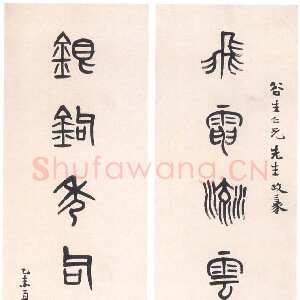 谷生仁兄先生政篆
飛電流雲
銀鉤秀句
乙亥二月
Shufawang.CN